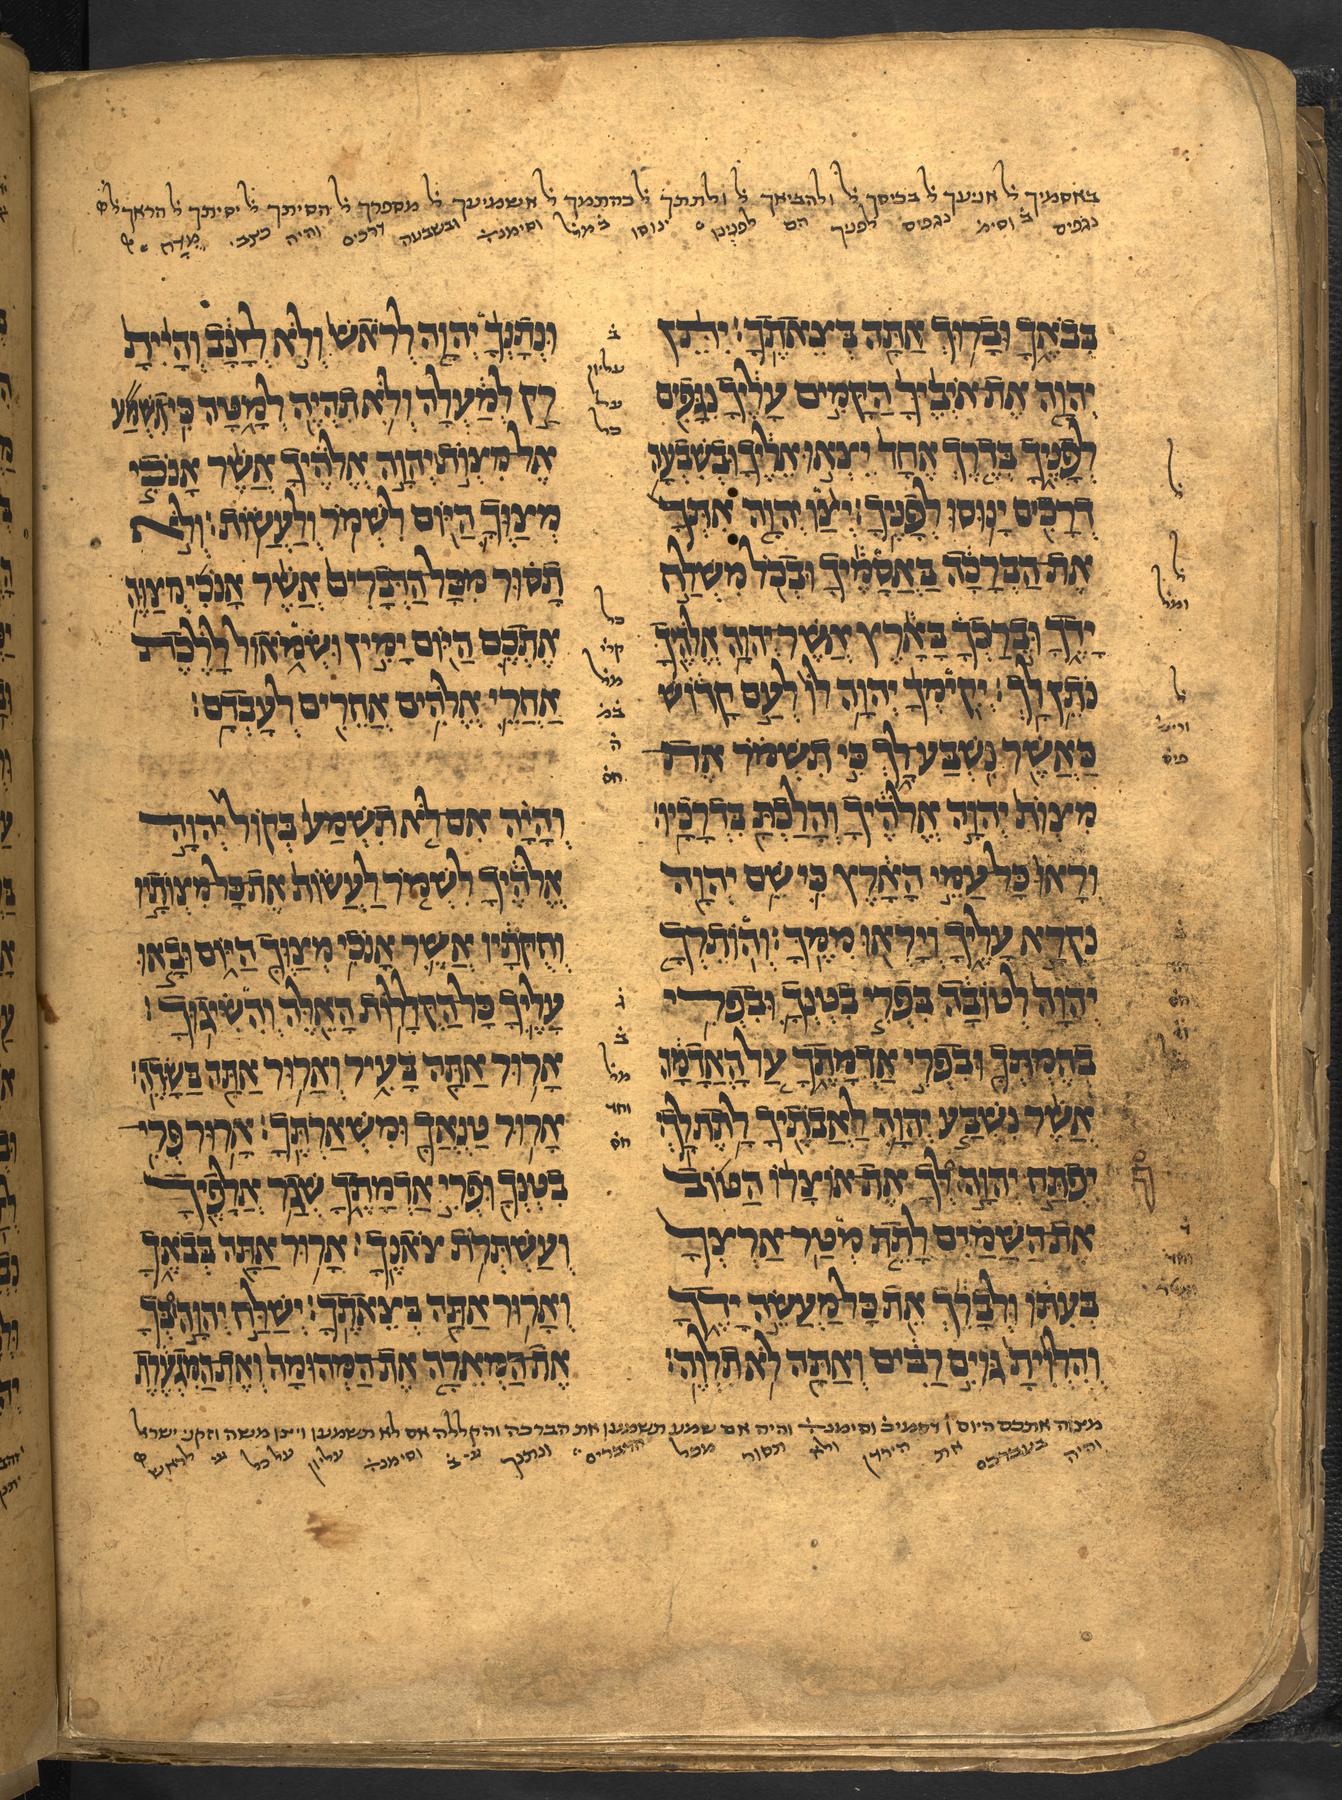 באסמיך ל אויעך ל בביסך ל ולהביאך ל ולתתך ל בהתמך ל אשמיעך ל מספרך ל הסיתך ל יסיתך ל הראך ל
נגפים ב וסימ נגפים לפניך הם לפנינו ינוסו ב מל וסימנה ובשבעה דרכים והיה
בְּבֹאֶךָ וּבָרוּךְ אַתָּה בְּצֵאתֶךָ׃ יִתֵּן
יְהוָה אֶת אֹיְבֶיךָ הַקָּמִים עָלֶיךָ נִגָּפִים
לְפָנֶיךָ בְּדֶרֶךְ אֶחָד יֵצְאוּ אֵלֶיךָ וּבְשִׁבְעָה
דְרָכִים יָנוּסוּ לְפָנֶיךָ׃ יְצַו יְהוָה אִתְּךָ
אֶת הַבְּרָכָה בַּאֲסָמֶיךָ וּבְכֹל מִשְׁלַח
יָדֶךָ וּבֵרַכְךָ בָּאָרֶץ אֲשֶׁר יְהוָה אֱלֹהֶיךָ
נֹתֵן לָךְ׃ יְקִימְךָ יְהוָה לוֹ לְעַם קָדוֹשׁ
כַּאֲשֶׁר נִשְׁבַּע לָךְ כִּי תִשְׁמֹר אֶת
מִצְוֹת יְהוָה אֱלֹהֶיךָ וְהָלַכְתָּ בִּדְרָכָיו׃
וְרָאוּ כָּל עַמֵּי הָאָרֶץ כִּי שֵׁם יְהוָה
נִקְרָא עָלֶיךָ וְיָרְאוּ מִמֶּךָּ׃ וְהוֹתִרְךָ
יְהוָה לְטוֹבָה בִּפְרִי בִטְנְךָ וּבִפְרִי
בְהֶמְתְּךָ וּבִפְרִי אַדְמָתֶךָ עַל הָאֲדָמָה
אֲשֶׁר נִשְׁבַּע יְהוָה לַאֲבֹתֶיךָ לָתֶת לָךְ׃
יִפְתַּח יְהוָה לְךָ אֶת אוֹצָרוֹ הַטּוֹב
אֶת הַשָּׁמַיִם לָתֵת מְטַר אַרְצְךָ
בְּעִתּוֹ וּלְבָרֵךְ אֵת כָּל מַעֲשֵׂה יָדֶךָ
וְהִלְוִיתָ גּוֹיִם רַבִּים וְאַתָּה לֹא תִלְוֶה׃
ב
עליון
על
כל
כל
קרי
מל
במ
ה
חס
ג
ב
מל
וחד
חס
וּנְתָנְךָ יְהוָה לְרֹאשׁ וְלֹא לְזָנָב וְהָיִיתָ
רַק לְמַעְלָה וְלֹא תִהְיֶה לְמָטָּה כִּי תִשְׁמַע
אֶל מִצְוֹת יְהוָה אֱלֹהֶיךָ אֲשֶׁר אָנֹכִי
מְצַוְּךָ הַיּוֹם לִשְׁמֹר וְלַעֲשׂוֹת׃ וְלֹא
תָסוּר מִכָּל הַדְּבָרִים אֲשֶׁר אָנֹכִי מְצַוֶּה
אֶתְכֶם הַיּוֹם יָמִין וּשְׂמֹאול לָלֶכֶת
אַחֲרֵי אֱלֹהִים אֲחֵרִים לְעָבְדָם׃
וְהָיָה אִם לֹא תִשְׁמַע בְּקוֹל יְהוָה
אֱלֹהֶיךָ לִשְׁמֹר לַעֲשׂוֹת אֶת כָּל מִצְוֹתָיו
וְחֻקֹּתָיו אֲשֶׁר אָנֹכִי מְצַוְּךָ הַיּוֹם וּבָאוּ
עָלֶיךָ כָּל הַקְּלָלוֹת הָאֵלֶּה וְהִשִּׂיגוּךָ׃
אָרוּר אַתָּה בָּעִיר וְאָרוּר אַתָּה בַּשָּׂדֶה׃
אָרוּר טַנְאֲךָ וּמִשְׁאַרְתֶּךָ׃ אָרוּר פְּרִי
בִטְנְךָ וּפְרִי אַדְמָתֶךָ שְׁגַר אֲלָפֶיךָ
וְעַשְׁתְּרֹת צֹאנֶךָ׃ אָרוּר אַתָּה בְּבֹאֶךָ
וְאָרוּר אַתָּה בְּצֵאתֶךָ׃ יְשַׁלַּח יְהוָה בְּךָ
אֶת הַמְּאֵרָה אֶת הַמְּהוּמָה וְאֶת הַמִּגְעֶרֶת
מצוה אתכם היום וסימנה והיה אם שמע תשמעון את הברכה והקללה אם לא תשמעון ויצו משה וזקני ישראל
והיה בעברכם את הירדן ולא תסור מכל הדברים ונתנך ב וסימנה עליון על כל לראש